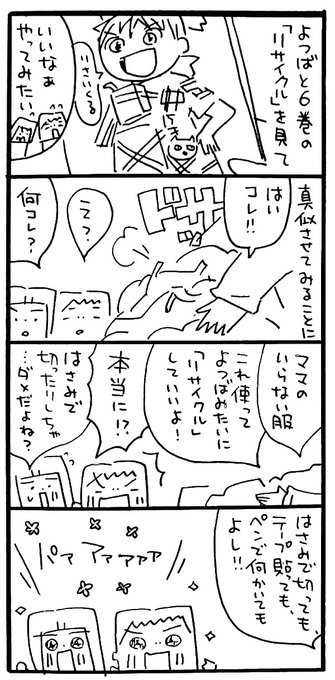 よつばと6巻の
「リサイクル」を見て
りさいくる
いいなぁ
やってみたい
真似させてみることに
はい
コレ!!
え?
何コレ?
ママの
いらない服
これ使って
よつばみたいに
「リサイクル」
していいよ!
本当に!?
はさみで
切ったりしちゃ
…ダメだよね?
はさみで切っても、
テープ貼っても、
ペンで何かいても
よし!!
パァァァァァァ